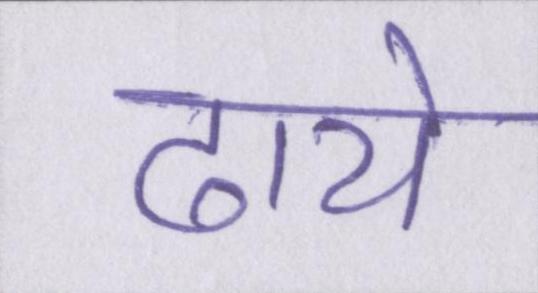 ढाये